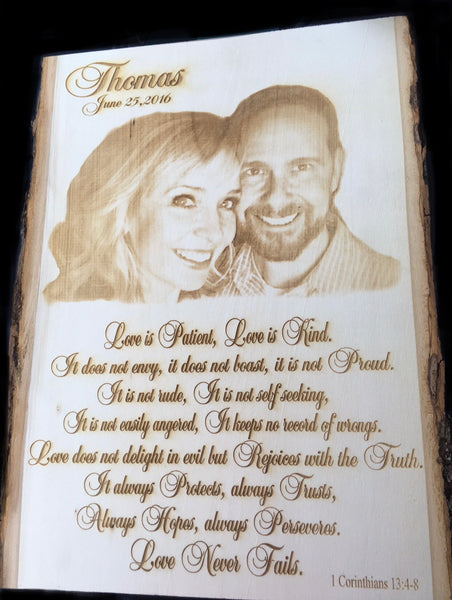 Thomas
June 25,2016
Love is Patient, Love is Kind.
It does not envy, it does not boast, it is not Proud.
It is not rude, It is not self seeking,
It is not easily angered, It keeps no record of wrongs.
Love does not delight in evil but Rejoices with the Truth.
It always Protects, always Trusts,
Always Hopes, always Perseveres.
Love Never Fails.
1 Corinthians 13:4-8